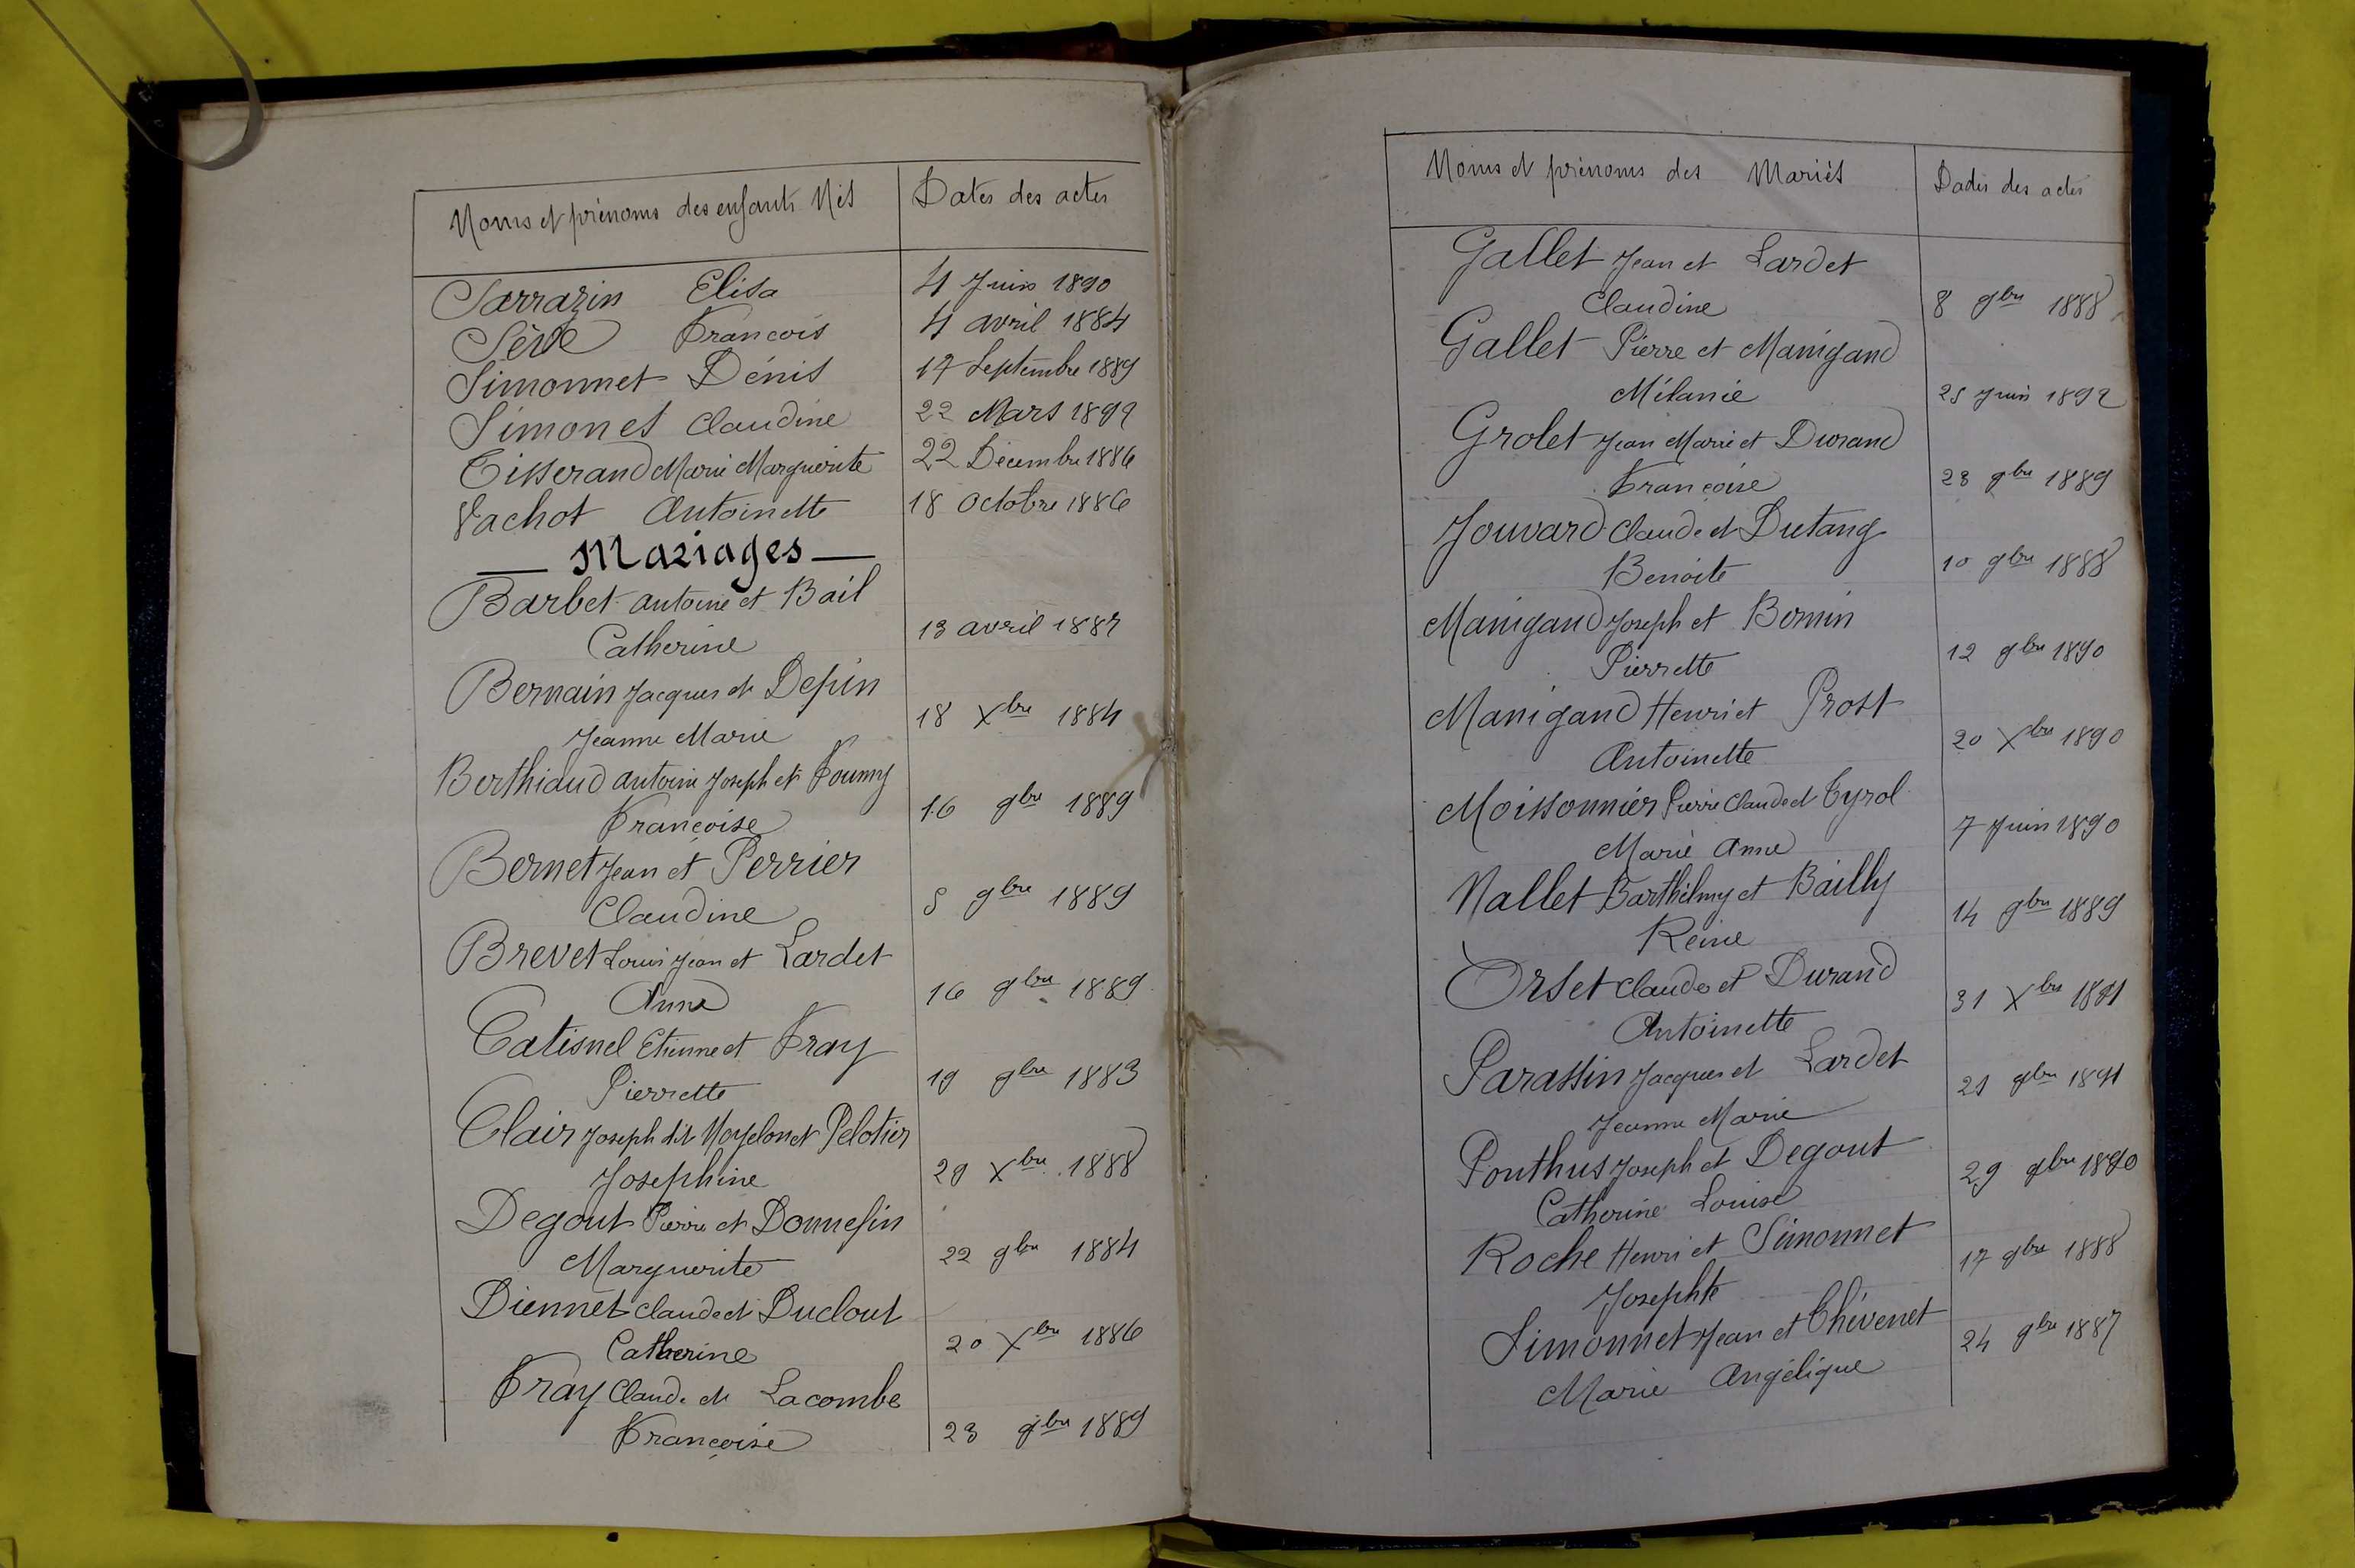 Noms et prénoms des enfants Nés Dates des actes
Sarrazin Elisa 4 Juin 1890
Sève Francois 4 avril 1884
Simonnet Dénis 17 Septembre 1889
Simonet Claudine 22 Mars 1892
Tisserand Marie Marguerite 22 Décembre 1886
Vachot Antoinette 18 Octobre 1886
— Mariages —
Barbet antoine et Bail
Catherine 13 avril 1887
Bernain Jacques et Depin
Jeanne Marie 18 Xbre 1884
Berthiaud antoine Joseph et Foumy
Françoise 16 9bre 1889
Bernet Jean et Perrier
Claudine 5 9bre 1889
Brevet Louis Jean et Lardet
Anne 16 9bre 1889
Catisnel Etienne et Fray
Pierrette 19 9bre 1883
Clair Joseph dit Moyelon et Pelotier
Josephine 29 Xbre 1888
Degout Pierre et Donnefin
Marguerite 22 9bre 1884
Diennet Claude et Duclout
Catherine 20 Xbre 1886
Fray Claude et Lacombe
Françoise 23 9bre 1889
Noms et prénoms des Mariés Dates des actes
Gallet Jean et Lardet
Claudine 8 9bre 1888
Gallet Pierre et Manigand
Mélanie 25 Juin 1892
Grolet Jean Marie et Durand
Françoise 23 9bre 1889
Jouvard Claude et Dutang
Benoite 10 9bre 1888
Manigand Joseph et Bomin
Pierrette 12 9bre 1890
Manigand Henri et Prost
Antoinette 20 Xbre 1890
Moissonnier Pierre Claude et Tyrol
Marie Anne 7 Juin 1890
Nallet Barthélmy et Bailly
Reine 14 9bre 1889
Orset Claude et Durand
Antoinette 31 Xbre 1891
Parassin Jacques et Lardet
Jeanne Marie 21 9bre 1891
Ponthus Joseph et Degout
Catherine Louise 29 9bre 1890
Roche Henri et Simonnet
Josephte 17 9bre 1888
Simonnet Jean et Thévenet
Marie Angélique 24 9bre 1887